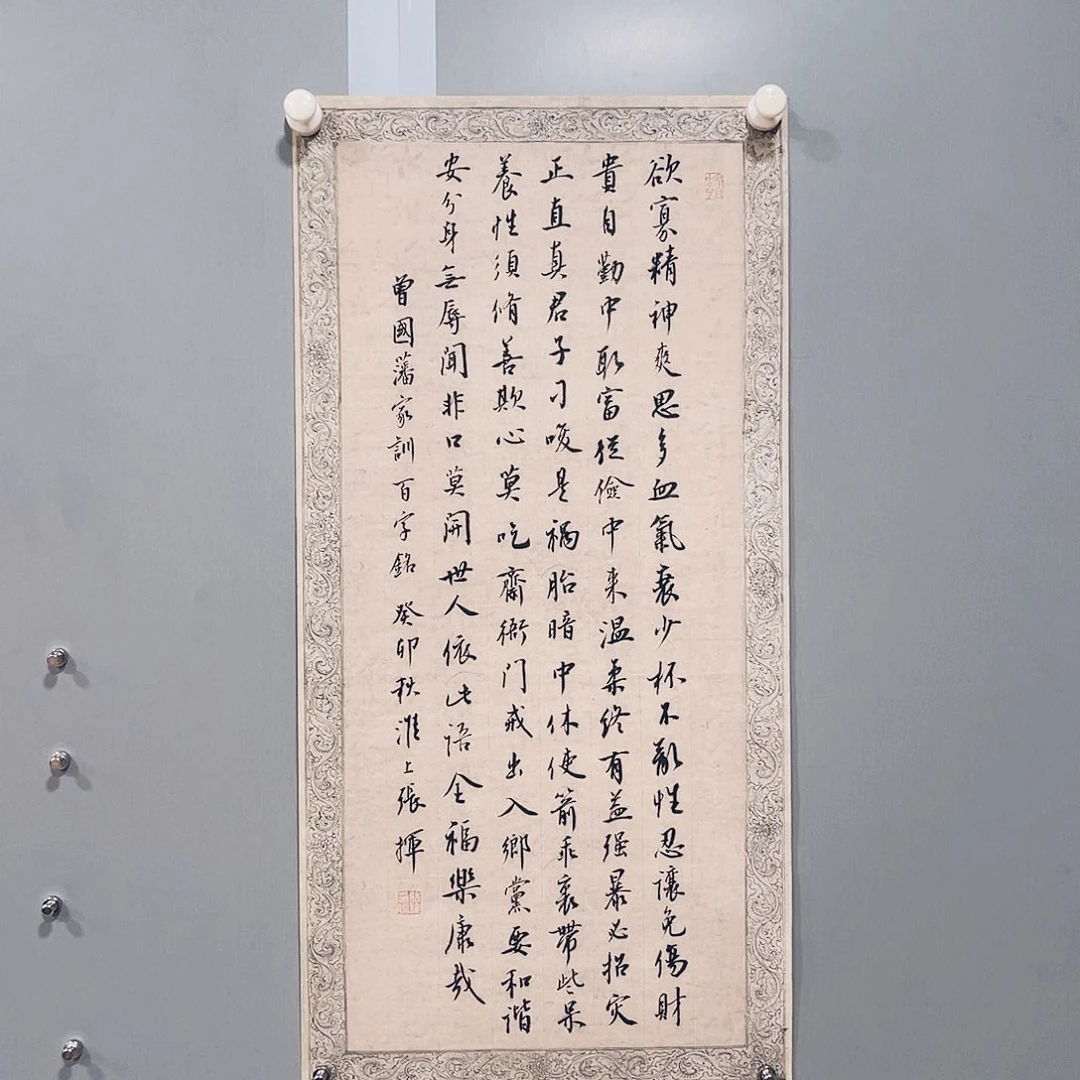 欲寡精神爽思多血氣衰少杯不亂性忍讓免傷財
貴自勤中取富從儉中來温柔終有益强暴必招灾
正直真君子刁唆是禍胎暗中休使箭乖裏帶些呆
養性須脩善欺心莫吃齋衙门戒出入鄉黨要和谐
安分身無辱聞非口莫開世人依此語全福樂康哉
曾國藩家訓百字銘 癸卯秋淮上張揮